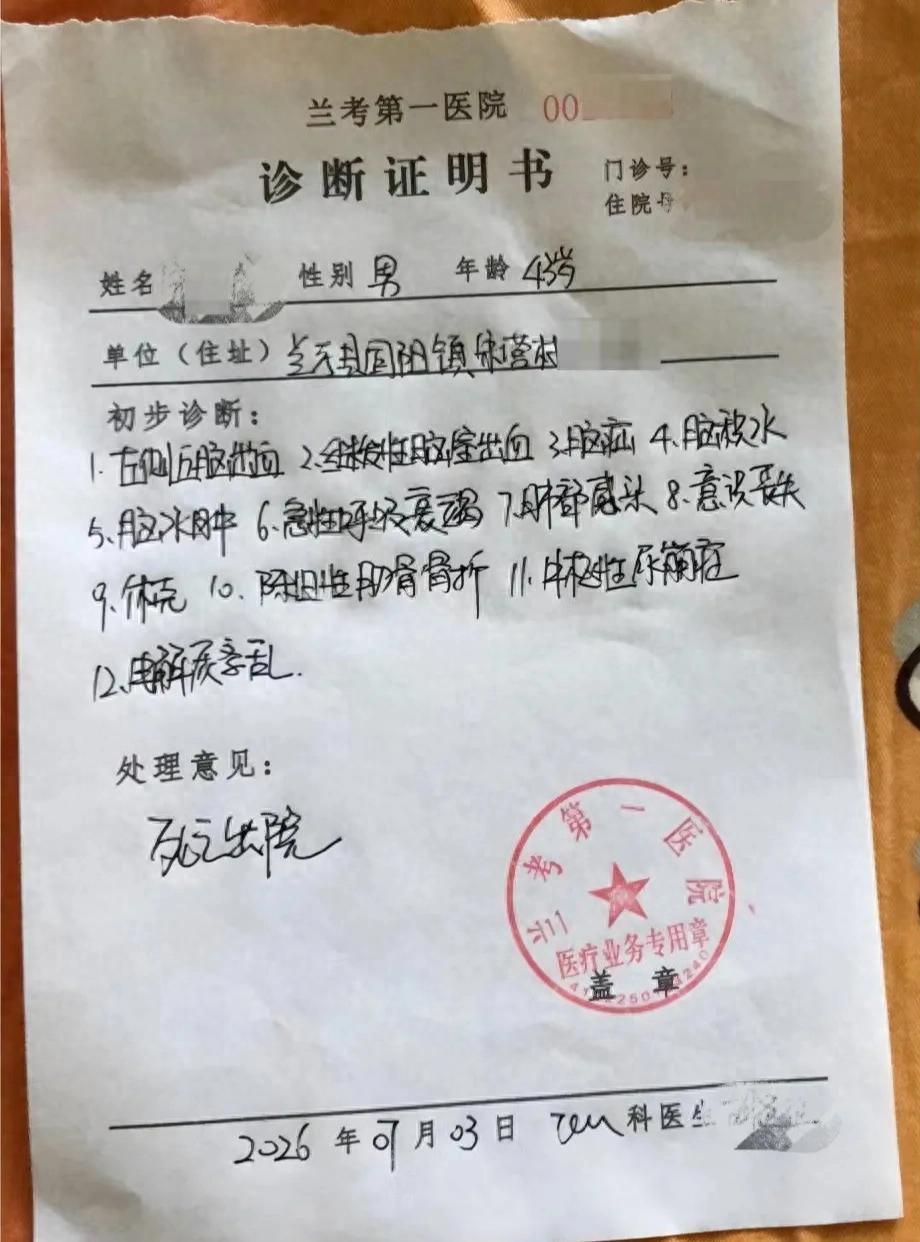 兰考第一医院 00
诊断证明书
门诊号:
住院号
姓名 性别 男 年龄 43岁
单位(住址) 兰考县固阳镇宋营村
初步诊断:
1. 右侧丘脑出血 2.继发性脑室出血 3.脑疝 4.脑积水
5.脑水肿 6.急性呼吸衰竭 7.肺部感染 8.意识丧失
9.休克 10.陈旧性肋骨骨折 11.中枢性尿崩症
12.电解质紊乱.
处理意见:
死亡出院
兰考第一医院
医疗业务专用章
盖章
2026年07月03日 科医生